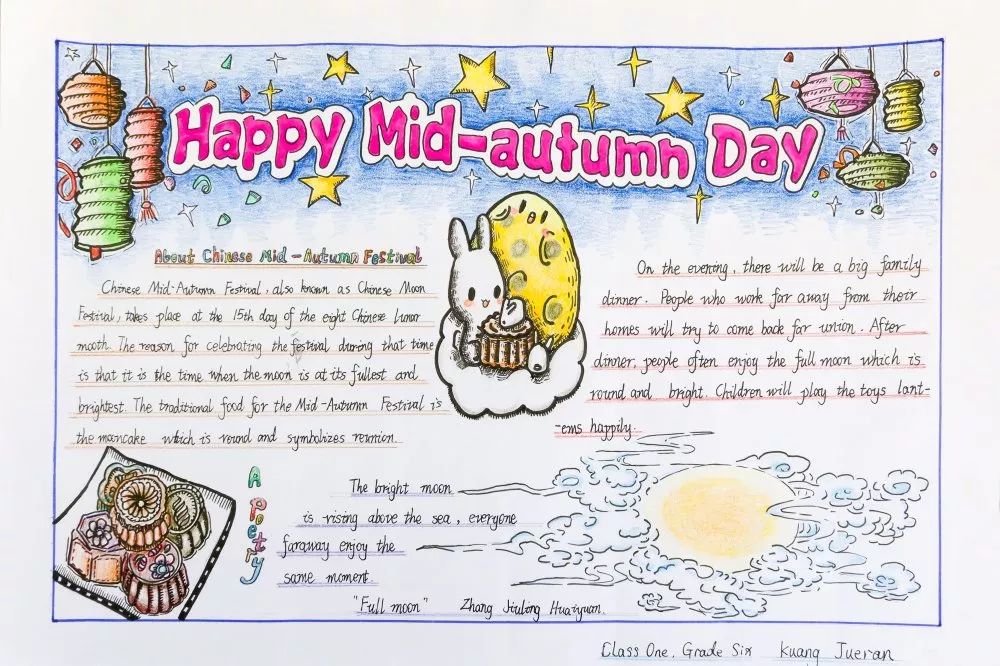 Happy Mid-autumn Day
About Chinese Mid-Autumn Festival
Chinese Mid-Autumn Festival, also known as Chinese Moon
Festival, takes place at the 15th day of the eight Chinese lunar
mooth. The reason for celebrating the festival during that time
is that it is the time when the moon is at its fullest and
brightest. The traditional food for the Mid-Autumn Festival is
the mooncake which is round and symbolizes reunion.
On the evening, there will be a big family
dinner. People who work far away from their
homes will try to come back for union. After
dinner, people often enjoy the full moon which is
round and bright. Children will play the toys lant-
-erns happily.
A Poetry
The bright moon
is rising above the sea, everyone
faraway enjoy the
same moment.
"Full moon" Zhang Jiuling Huaiyuan.
Class One, Grade Six Kuang Jueran